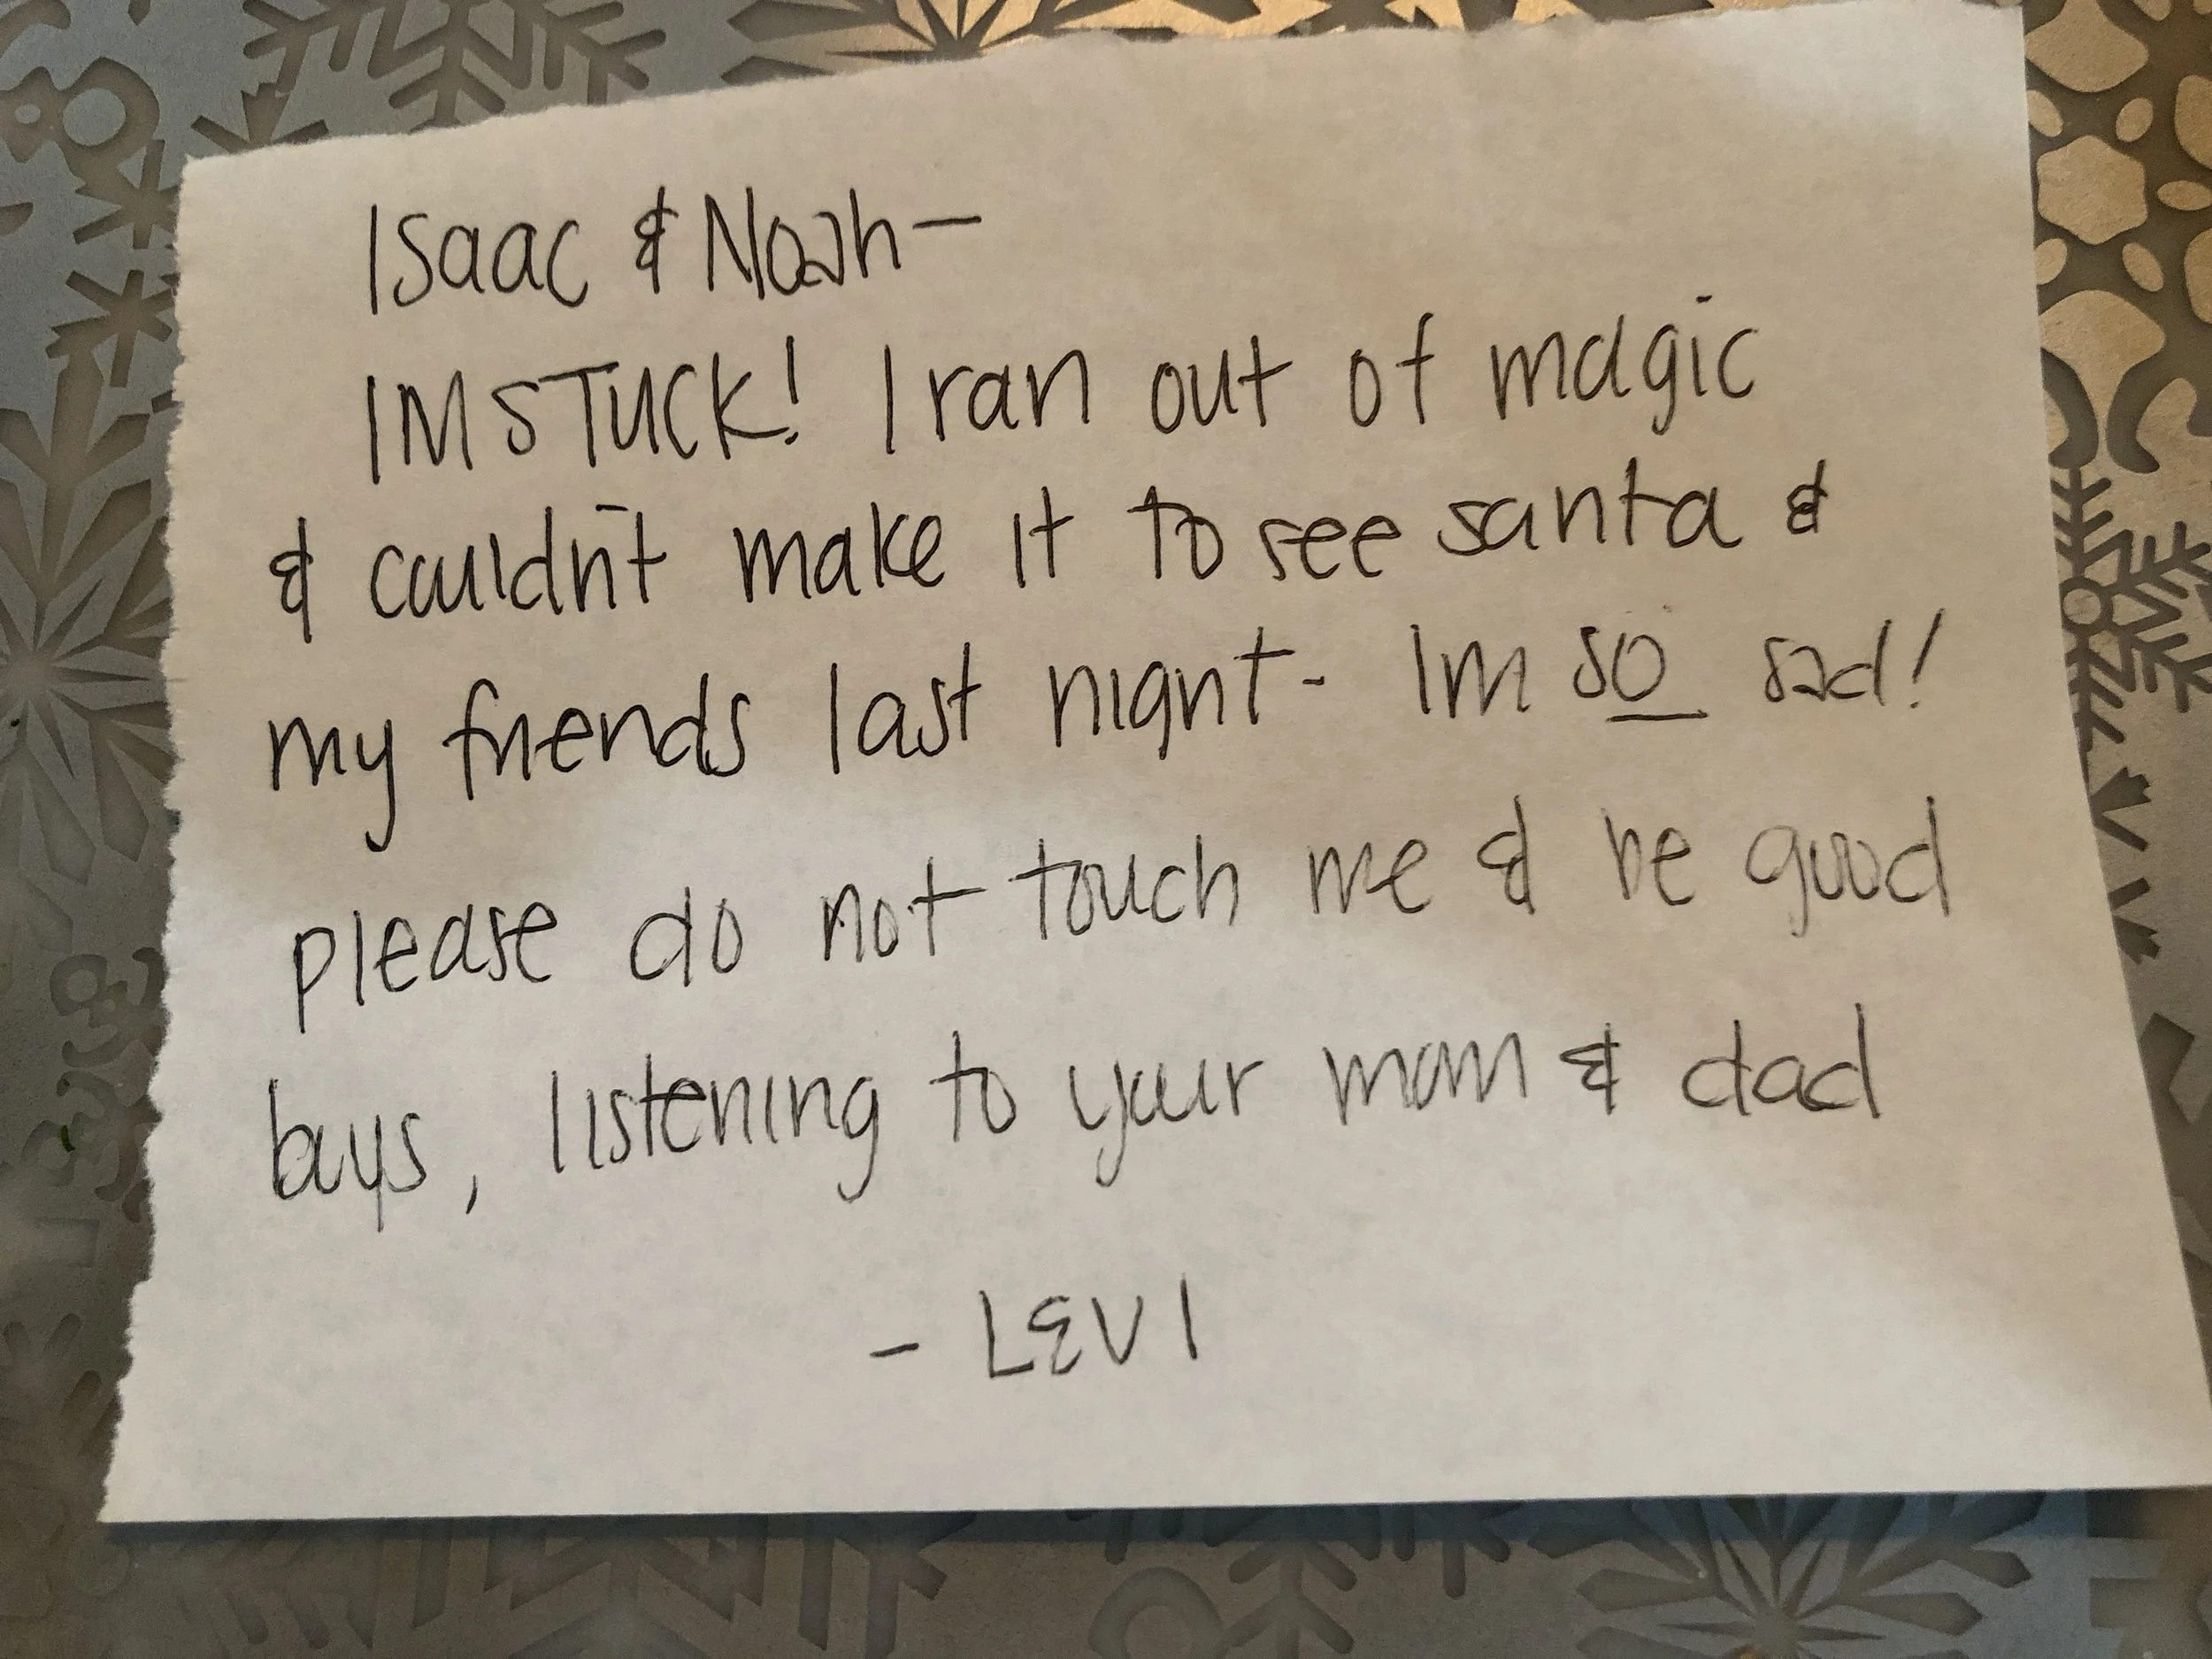 Isaac & Noah—
IM STUCK! I ran out of magic
& couldn't make it to see santa &
my friends last night- Im so sad!
please do not touch me & be good
boys, listening to your mom & dad
- LEVI